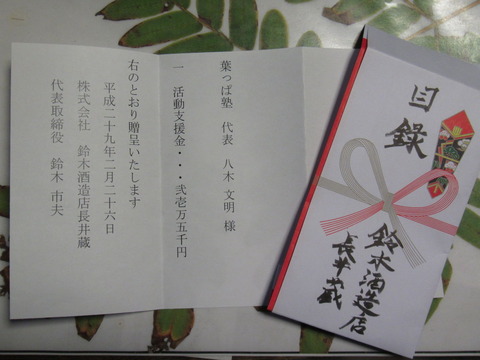 葉っぱ塾　代表　八木 文明 様
一　活動支援金・・・弐壱万五千円
右のとおり贈呈いたします
平成二十九年二月二十六日
株式会社　鈴木酒造店長井蔵
代表取締役　鈴木 市夫
目録
鈴木酒造店
長井蔵